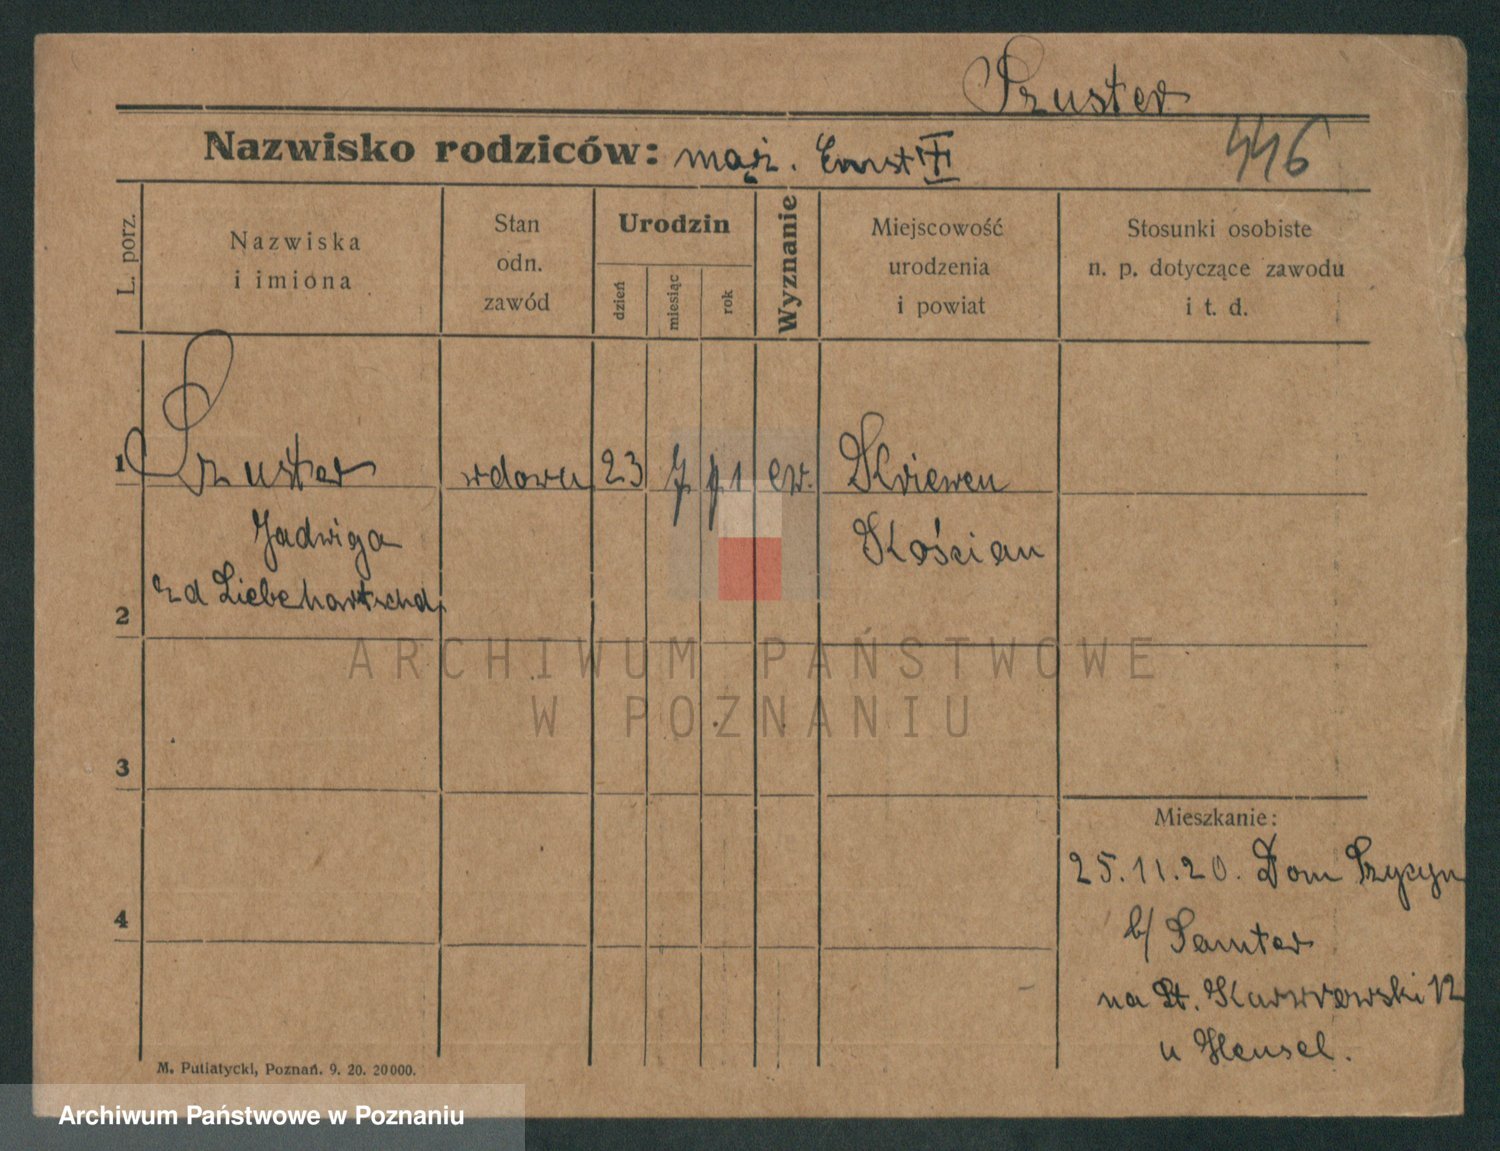 Szuster
Nazwisko rodziców: mąż. Ernst
446
L. porz.
Nazwiska
i imiona
Stan
odn.
zawód
Urodzin
dzień
miesiąc
rok
Wyznanie
Miejscowość
urodzenia
i powiat
Stosunki osobiste
n. p. dotyczące zawodu
i t. d.
1 Szuster wdowa 23 7 71 ew. Kriewen
Jadwiga Kościan
zd
2
ARCHIWUM PAŃSTWOWE
W POZNANIU
3
Mieszkanie:
25.11.20. Dom
4
b/ Samter
na St.
u Hensel.
M. Putiatycki, Poznań. 9. 20. 20000.
Archiwum Państwowe w Poznaniu